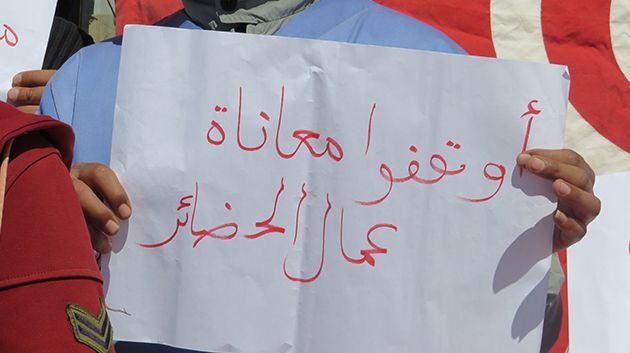 أوتقفوا معاناة
عمال الحضائر